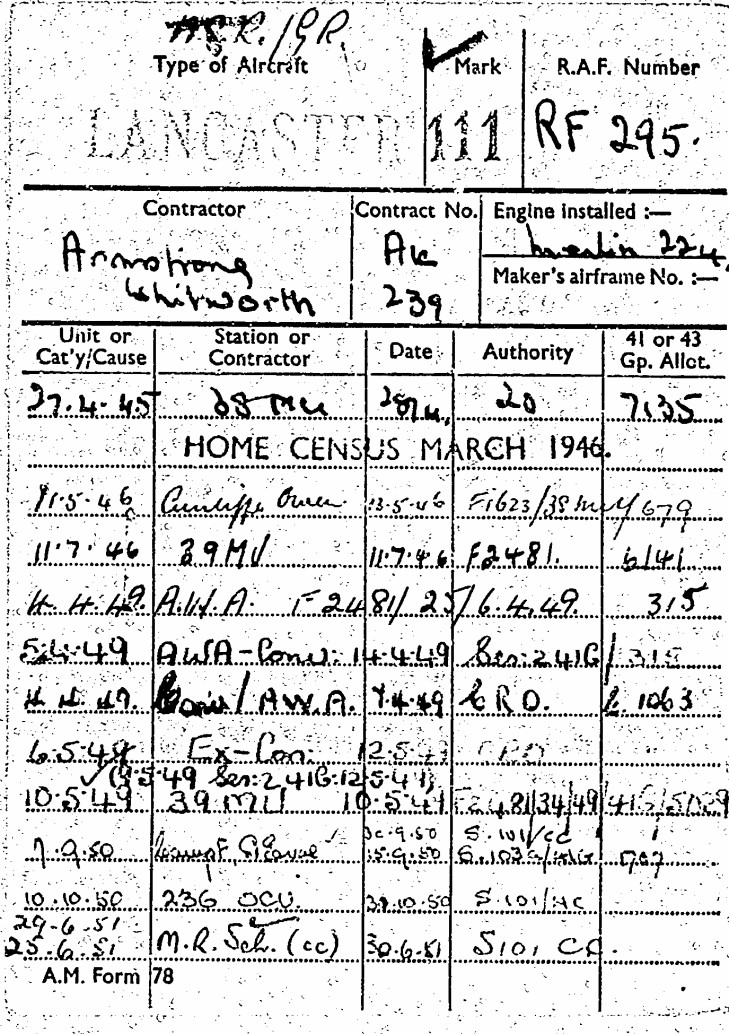 ASR./GR.
Type of Aircraft Mark R.A.F. Number
LANCASTER 111 RF 295.
Contractor Contract No. Engine installed :—
Armstrong Whitworth AK 239 Merlin 224.
Maker's airframe No. :—
Unit or Cat'y/Cause Station or Contractor Date Authority 41 or 43 Gp. Allot.
27.4.45 38 MU 20 7135
HOME CENSUS MARCH 1946.
11.5.46 Cunliffe Owen 13.5.46 F1623/38 MU/679
11.7.46 39 MU 11.7.46 F2481. 6141
4.4.49. A.W.A. F2481/25/6.4.49. 315
5.4.49 AWA-Conv: 14.4.49 Ser:241G/315
4.4.49. Conv/A.W.A. 7.4.49 C.R.D. 1063
6.5.49 Ex-Con: 12.5.49 CRD
(9.5.49 Ser:241G.12.5.49)
10.5.49 39 MU 10.5.49 F2481/34/49/41G/51029
7.9.50 15.9.50 707
S.101/CC
10.10.50 236 OCU. 30.10.50 S.101/
29.6.51
25.6.51 M.R. Sch. (cc) 30.6.51 S101 CC.
A.M. Form 78